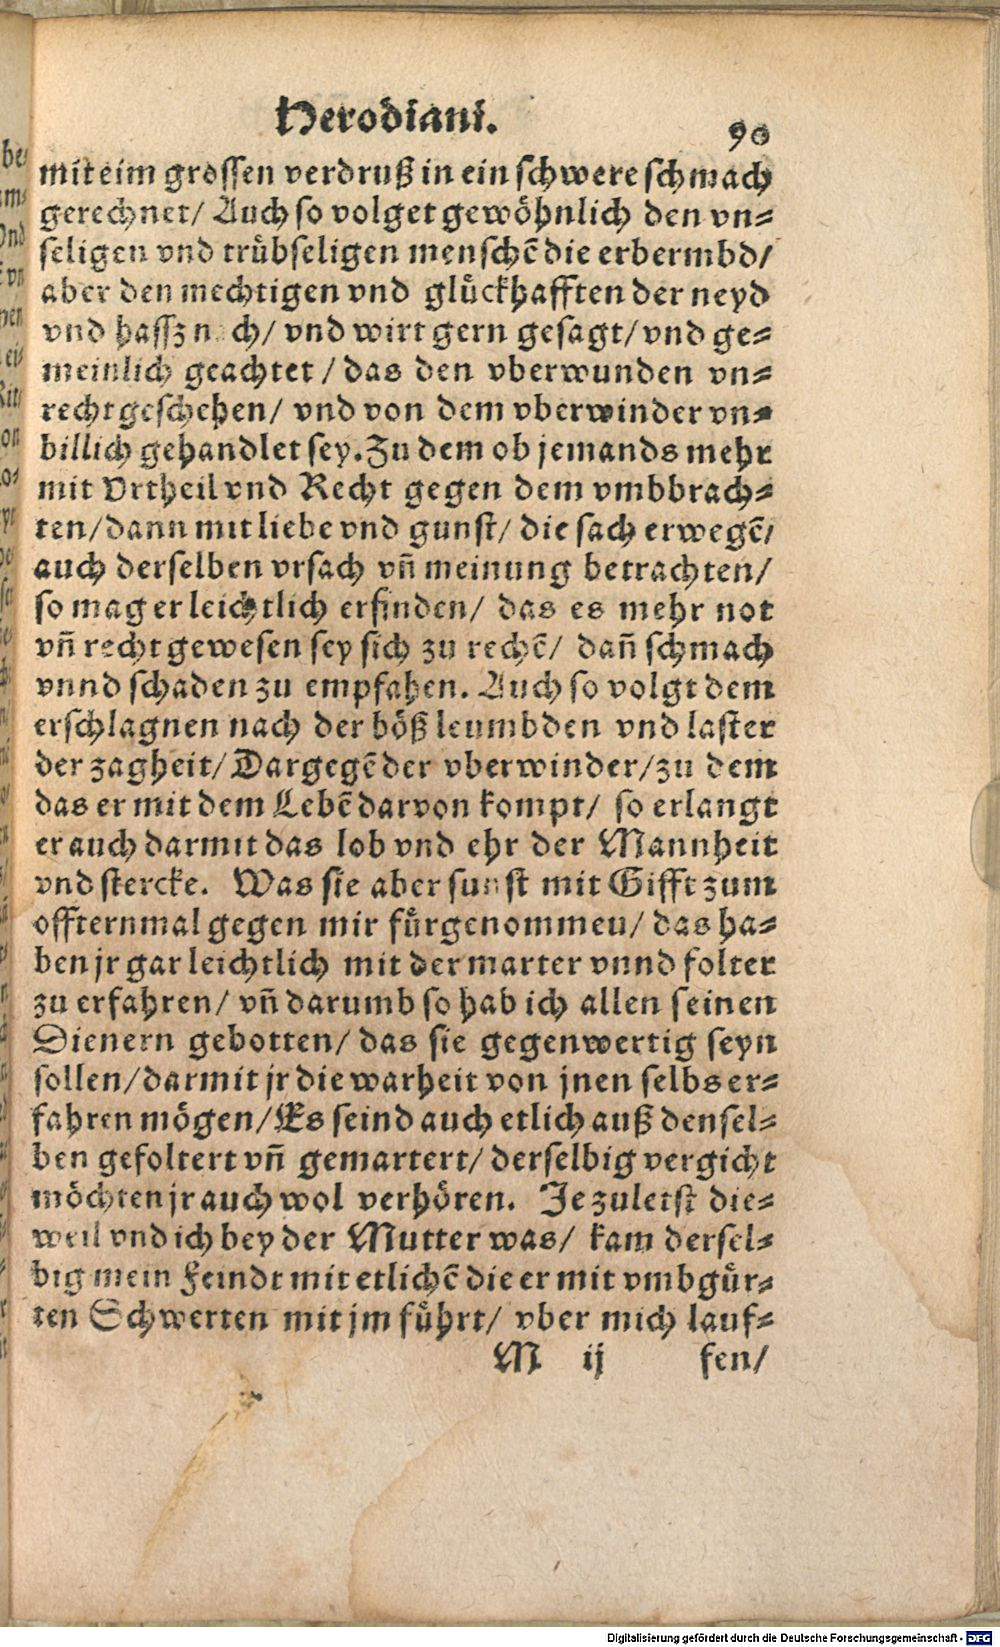 Herodiani.
90
mit eim grossen verdruß in ein schwere schmach
gerechnet/ Auch so volget gewöhnlich den vn⸗
seligen vnd trübseligen menschē die erbermbd/
aber den mechtigen vnd glückhafften der neyd
vnd hassz n ch/ vnd wirt gern gesagt/ vnd ge⸗
meinlich geachtet / das den vberwunden vn⸗
recht geschehen/ vnd von dem vberwinder vn⸗
billich gehandlet sey. Zu dem ob jemands mehr
mit Vrtheil vnd Recht gegen dem vmbbrach⸗
ten/ dann mit liebe vnd gunst/ die sach erwegē/
auch derselben vrsach vñ meinung betrachten/
so mag er leichtlich erfinden/ das es mehr not
vñ recht gewesen sey sich zu rechē/ dañ schmach
vnnd schaden zu empfahen. Auch so volgt dem
erschlagnen nach der böß leumbden vnd laster
der zagheit/ Dargegē der vberwinder/ zu dem
das er mit dem Lebē darvon kompt/ so erlangt
er auch darmit das lob vnd ehr der Mannheit
vnd stercke. Was sie aber sunst mit Gifft zum
offternmal gegen mir fürgenommeu/ das ha⸗
ben jr gar leichtlich mit der marter vnnd folter
zu erfahren/ vñ darumb so hab ich allen seinen
Dienern gebotten/ das sie gegenwertig seyn
sollen/ darmit jr die warheit von jnen selbs er⸗
fahren mögen/ Es seind auch etlich auß densel⸗
ben gefoltert vñ gemartert/ derselbig vergicht
möchten jr auch wol verhören. Je zuletst die⸗
weil vnd ich bey der Mutter was/ kam dersel⸗
big mein Feindt mit etlichē die er mit vmbgür⸗
ten Schwerten mit jm führt/ vber mich lauf⸗
M ij fen/
Digitalisierung gefördert durch die Deutsche Forschungsgemeinschaft - DFG